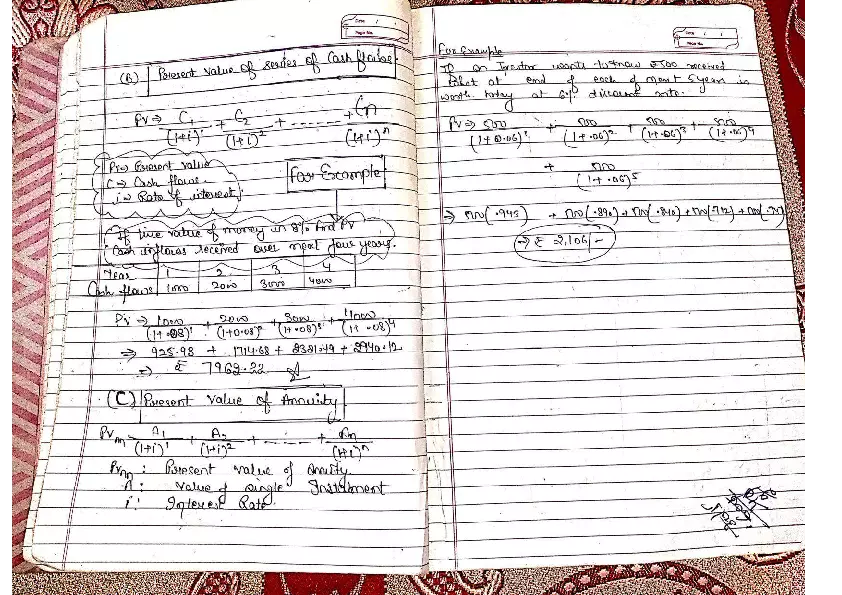 Date / /
Page No.
(B) Present value of series of Cash flows:
PV ⇒ C1/(1+i)^1 + C2/(1+i)^2 + ------- + Cn/(1+i)^n
PV ⇒ Present value
C ⇒ Cash flows
i ⇒ Rate of interest
For Example
If time value of money in 8% And PV
Cash inflows received over next four years.
Year 1 2 3 4
Cash flows 1000 2000 3000 4000
PV ⇒ 1000/(1+.08)^1 + 2000/(1+0.08)^2 + 3000/(1+.08)^3 + 4000/(1+.08)^4
⇒ 925.93 + 1714.68 + 2381.49 + 2940.12
⇒ ₹ 7962.22
(C) Present Value of Annuity
PVn A1/(1+i)^1 + A2/(1+i)^2 + ------ + An/(1+i)^n
PVn : Present value of Annuity
A : Value of single Instalment
i : Interest Rate
Date / /
Page No.
For Example
If an Investor wants to know ₹500 received
at end of each of next 5 years in
worth today at 6% discount rate.
PV ⇒ 500/(1+0.06)^1 + 500/(1+.06)^2 + 500/(1+.06)^3 + 500/(1+.06)^4
+ 500/(1+.06)^5
⇒ 500(.943) + 500(.890) + 500(.840) + 500(.792) + 500(.747)
⇒ ₹ 2,106/-